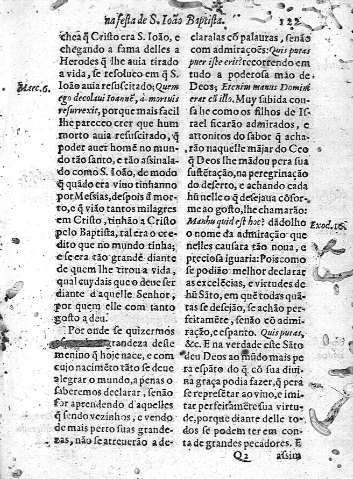 na festa de S. Ioão Baptista. 122
chea q̃ Cristo era S. Ioão, e
chegando a fama delles a
Herodes q̃ lhe auia tirado
a vida, se resolueo em q̃ S.
Marc. 6.
Ioão auia resuscitado; Quem
ego decolaui Ioannẽ, à mortuis
resurrexit, porque mais facil
lhe pareceo crer que hum
morto auia resuscitado, q̃
poder auer homẽ no mundo
tão santo, e tão assinalado
como S. Ioão, de modo
q̃ quãdo era vino tinhamno
por Messias, despois q̃ morto,
e q̃ vião tantos milagres
em Cristo, tinhão a Cristo
pelo Baptista, tal era o credito
que no mundo tinha;
e se era tão grandẽ diante
de quem lhe tirou a vida,
qual cuydais que o deue ser
diante daquelle Senhor,
por quem elle com tanto
gosto a deu.
Por onde se quizermos
grandeza deste
menino q̃ hoje nace, e com
cujo nacimẽto tãto se deue
alegrar o mundo, a penas o
saberemos declarar, senão
for aprendendo d'aquelles
q̃ sendo vezinhos, e vendo
de mais perto suas grandezas,
não se atreuerão a declaralas
cõ palauras, senão
com admirações: Quis putas
puer iste erit? recorrendo em
tudo a poderosa mão de
Deos; Etenim manus Domini
erat cũ illo. Muy sabida cousa
he como os filhos de Israel
ficarão admirados, e
attonitos do sabor q̃ acharão
naquelle mãjar do Ceo
q̃ Deos lhe mãdou pera sua
sustẽtação, na peregrinação
do deserto, e achando cada
hũ nelle o q̃ desejaua cõforme
ao gosto, lhe chamarão:
Exod. 16.
Manhu quid est hoc? dãdolho
o nome da admiração que
nelles causara tão noua, e
preciosa iguaria: Pois como
se podião melhor declarar
as excelencias, e virtudes de
hũ Sãto, em que todas quãtas
se desejão, se achão perfeitamẽte,
senão cõ admiração,
e espanto. Quis putas,
&c. E na verdade este Sãto
deu Deos ao mũdo mais pera
espãto do q̃ cõ sua diuina
graça podia fazer, q̃ pera
se represẽtar ao vino, e imitar
perfeitamẽte sua virtude,
porque diante delle todos
se podem ter em conta
de grandes pecadores. E
Q2 assim